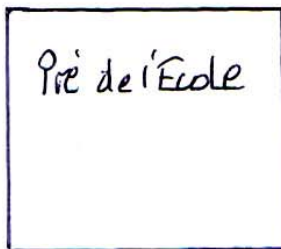 Pré de l'Ecole